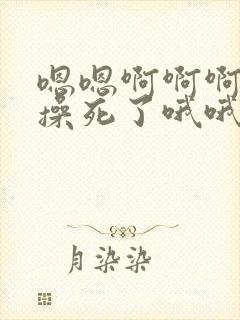 嗯嗯啊啊啊
操死了哦哦
月染染